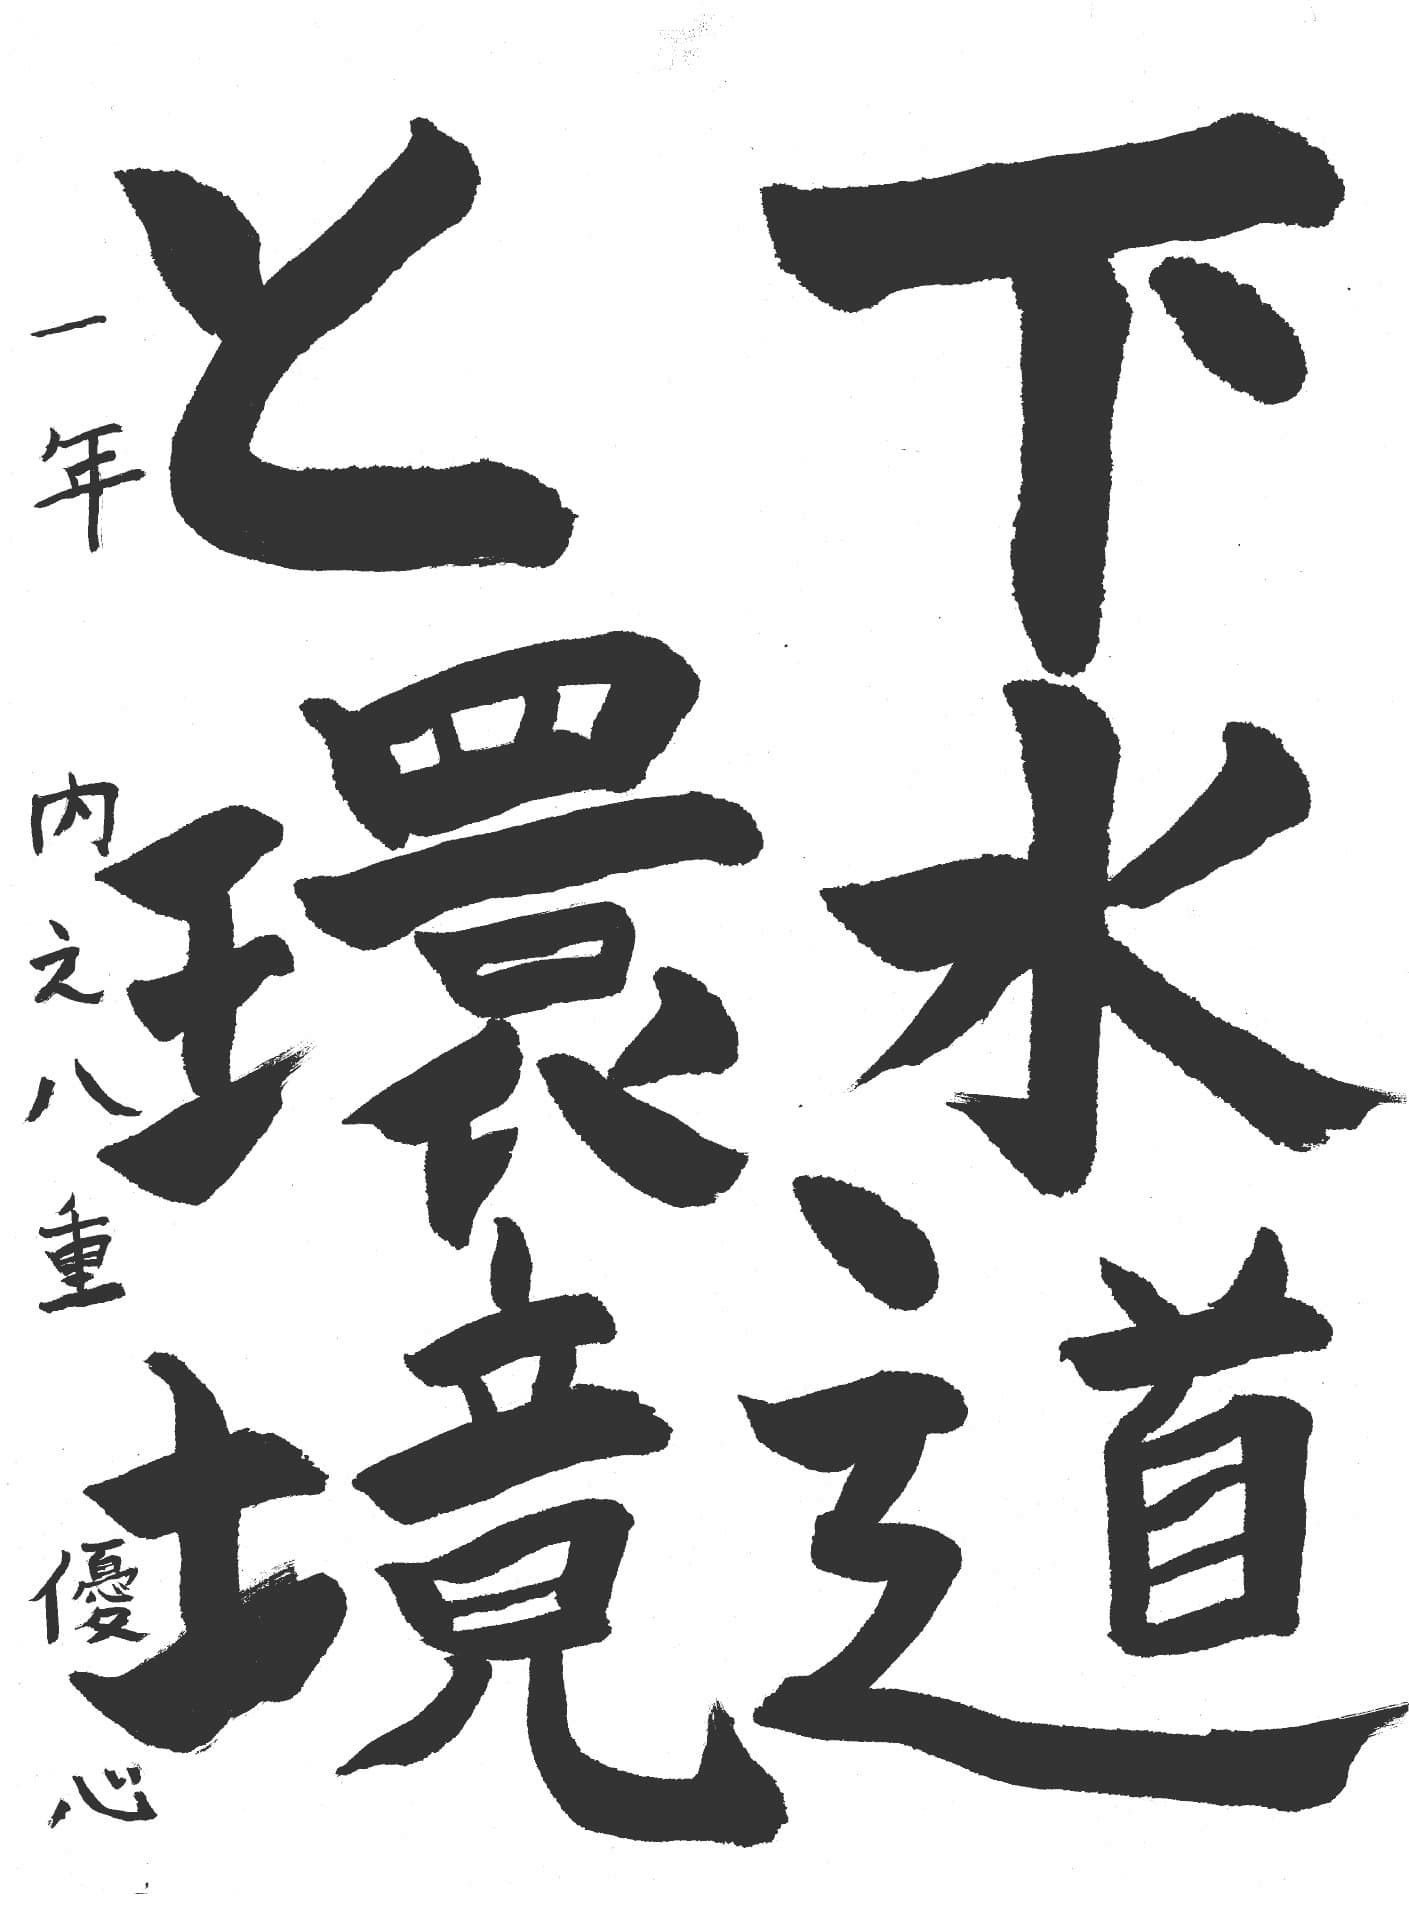 下水道
と環境
一年 内之八重 優心